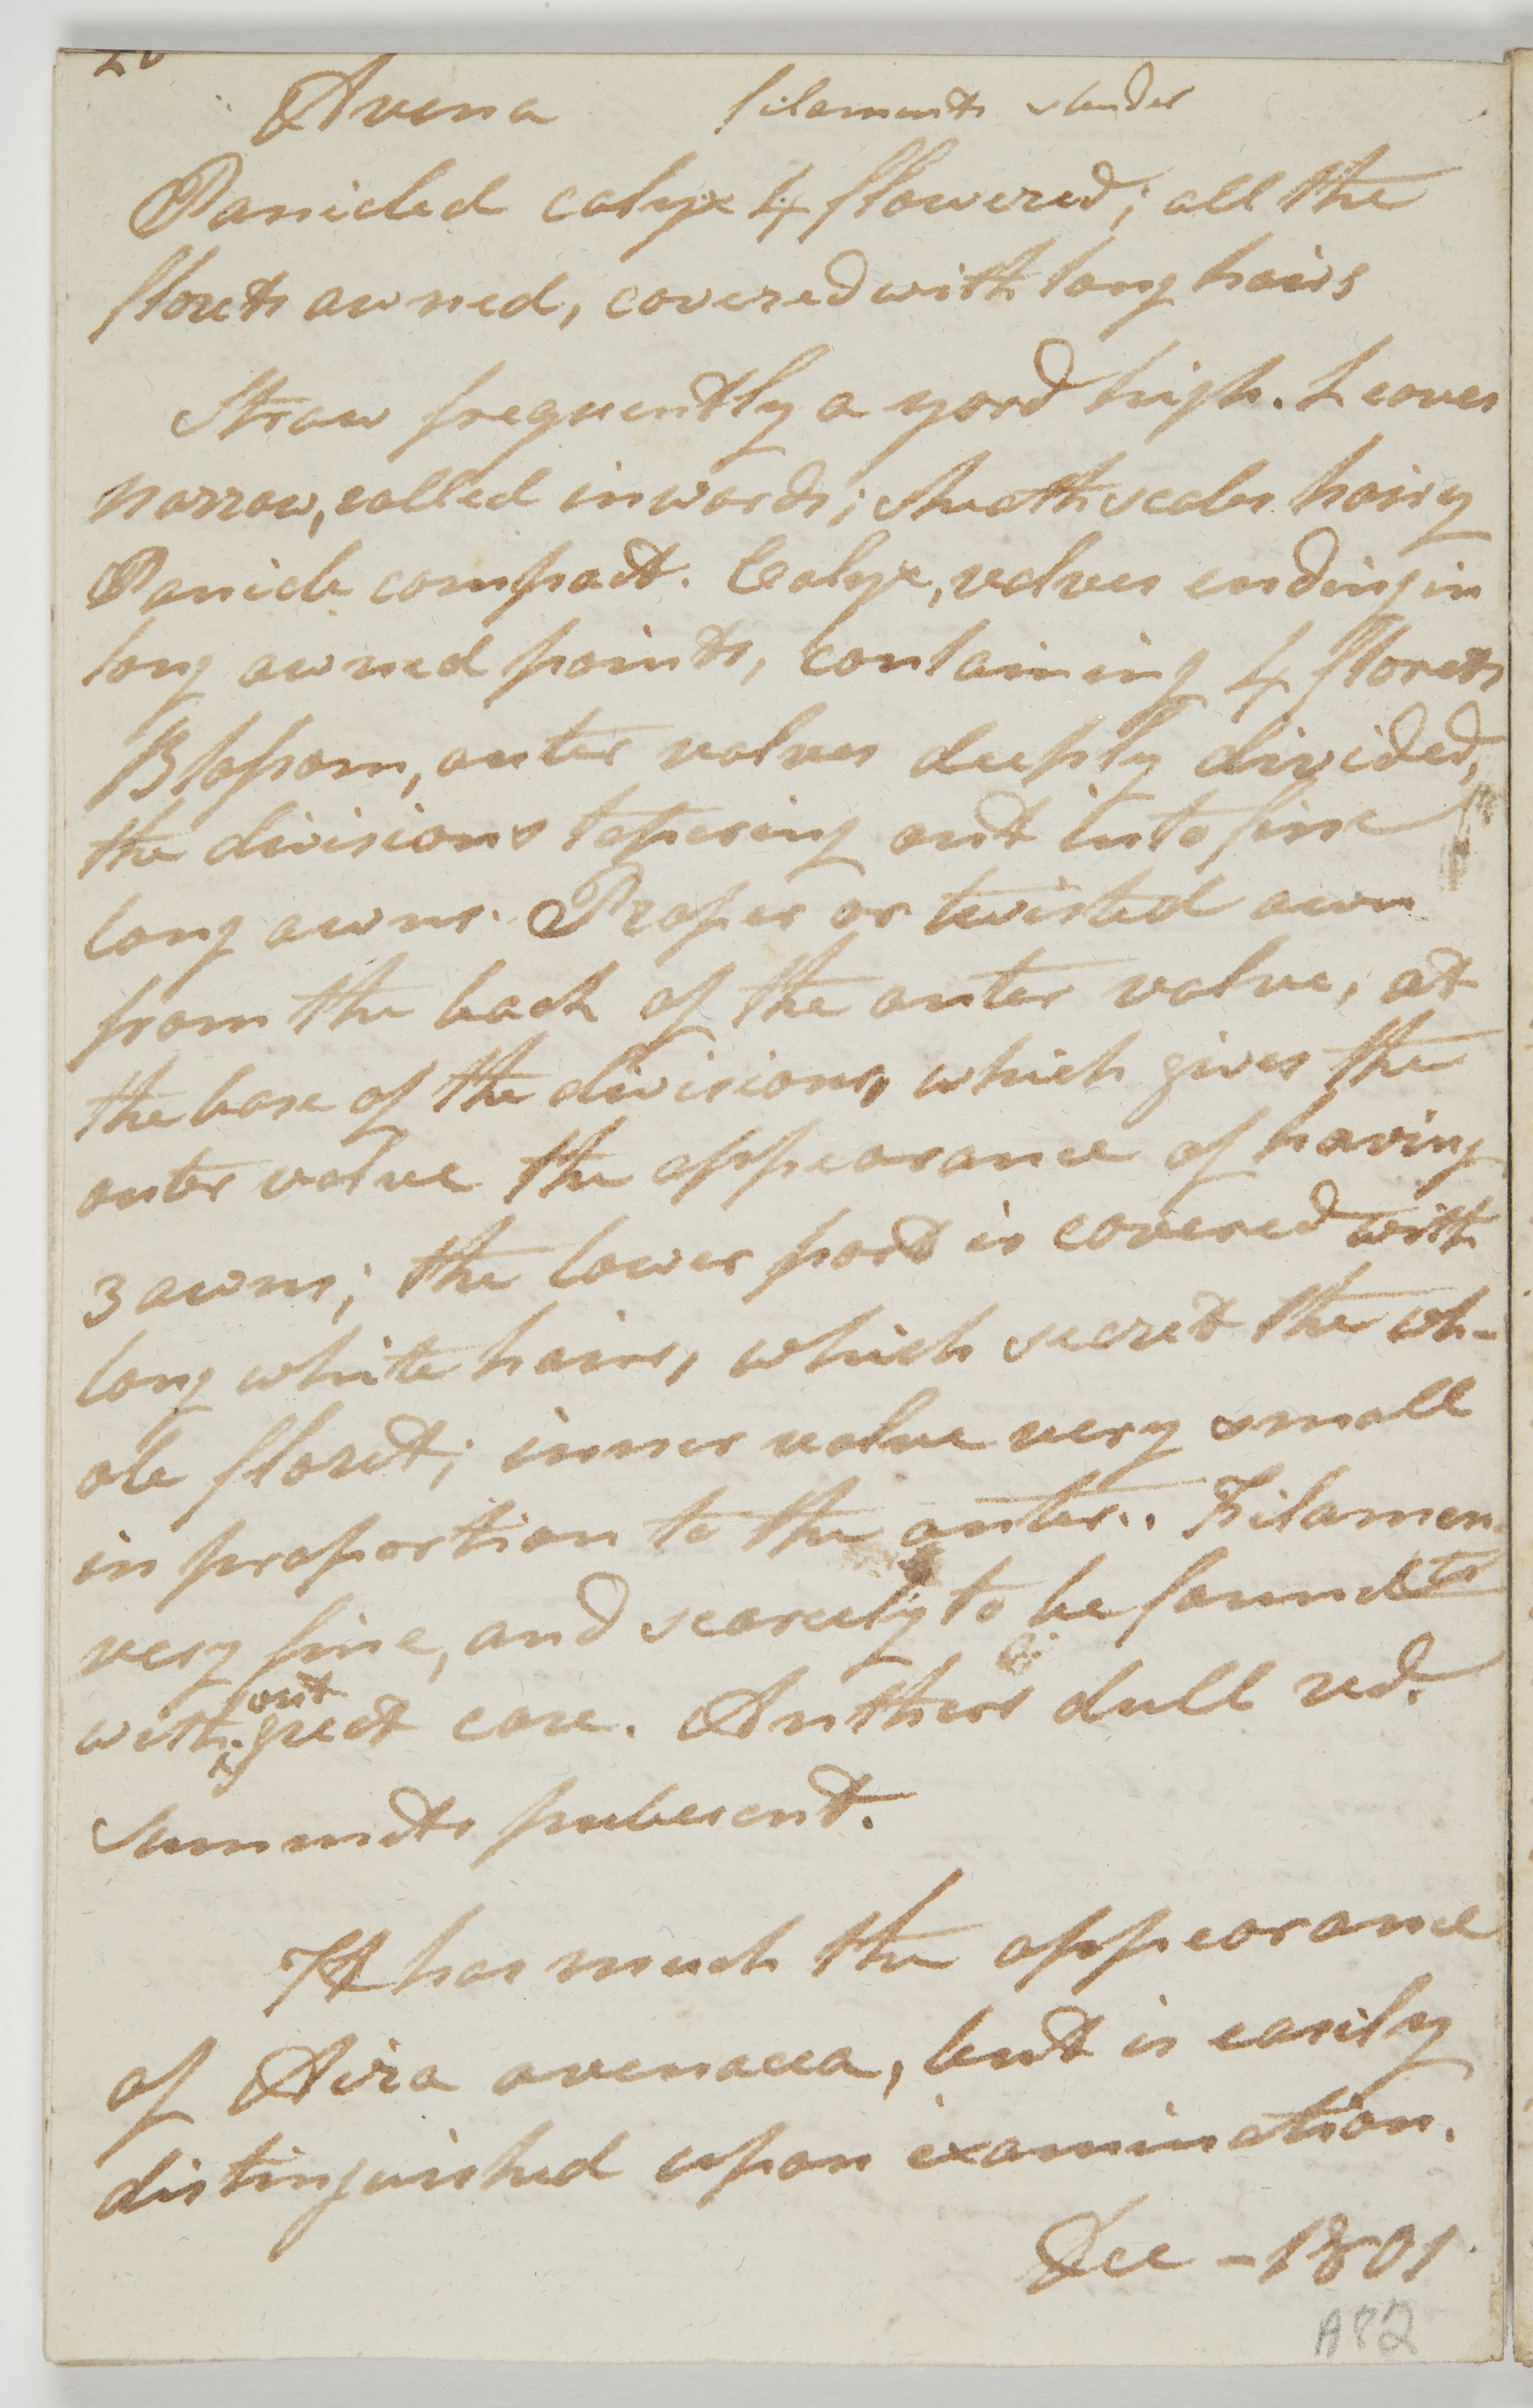 Avena filaments slender
Panicled calyx 4 flowered; all the
florets awned, covered with long hairs
Straw frequently a yard high. Leaves
narrow, rolled inwards; sheath scales hairy
Panicle compact. Calyx, valves ending in
long awned points, containing 4 florets
Blossom, outer valves deeply divided,
the divisions tapering out into fine
long awns. Proper or twisted awn
from the back of the outer valve, at
the base of the divisions, which gives the
outer valve the appearance of having
3 awns; the lower part is covered with
long white hairs, which secret the wh-
ole floret; inner valve very small
in proportion to the outer. Filamen-
very fine, and scarcely to be found ts
with^out great care. Anthers dull red.
Summits pubescent.
It has much the appearance
of Aira avenacea, but is easily
distinguished upon examination.
Dec - 1801
A82